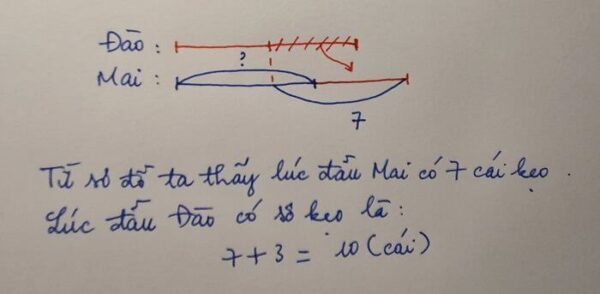 Đào :
?
Mai :
7
Từ sơ đồ ta thấy lúc đầu Mai có 7 cái kẹo.
Lúc đầu Đào có số kẹo là:
7 + 3 = 10 (cái)